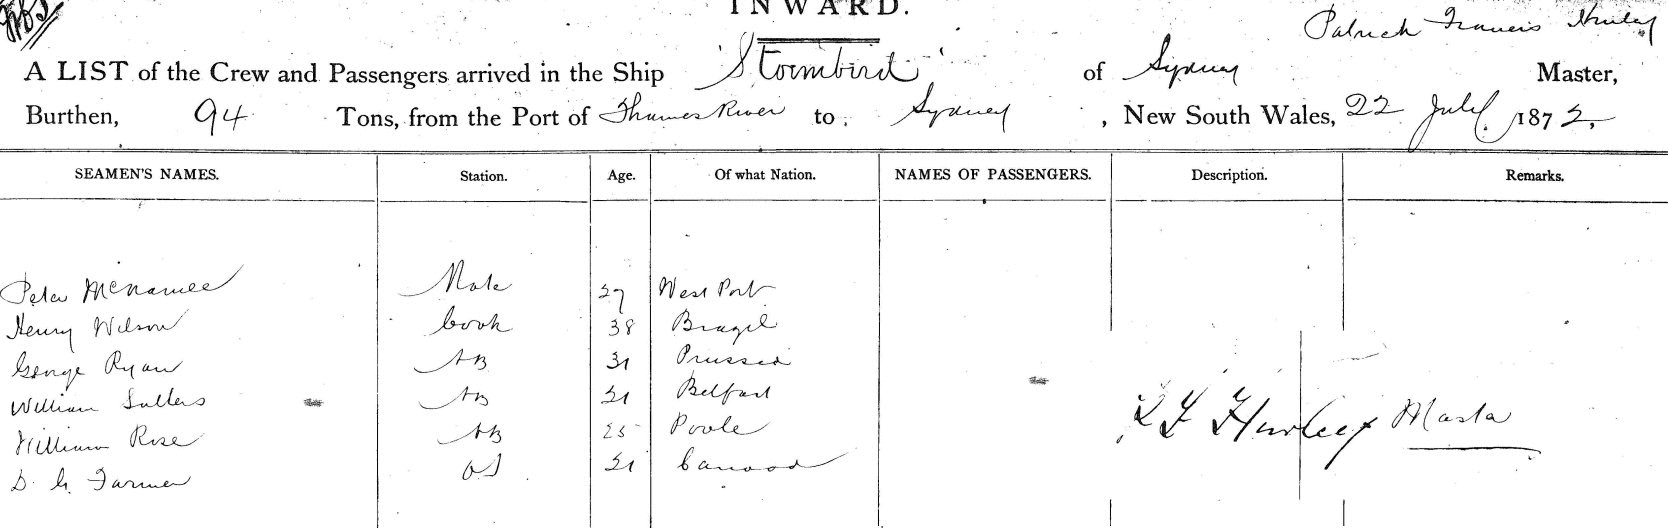 INWARD.
Patrick Francis Hurley
A LIST of the Crew and Passengers arrived in the Ship 'Stormbird', of Sydney Master,
Burthen, 94 Tons, from the Port of Thames River to Sydney, New South Wales, 22 July 1872,
SEAMEN'S NAMES. Station. Age. Of what Nation. NAMES OF PASSENGERS. Description. Remarks.
Peter McNamee Mate 27 West Port
Henry Wilson Cook 38 Brazil
George Ryan AB 31 Prussia
William AB 21 Belfast
William Rose AB 25 Poole
D. G. Farmer OS 21
P F Hurley Master